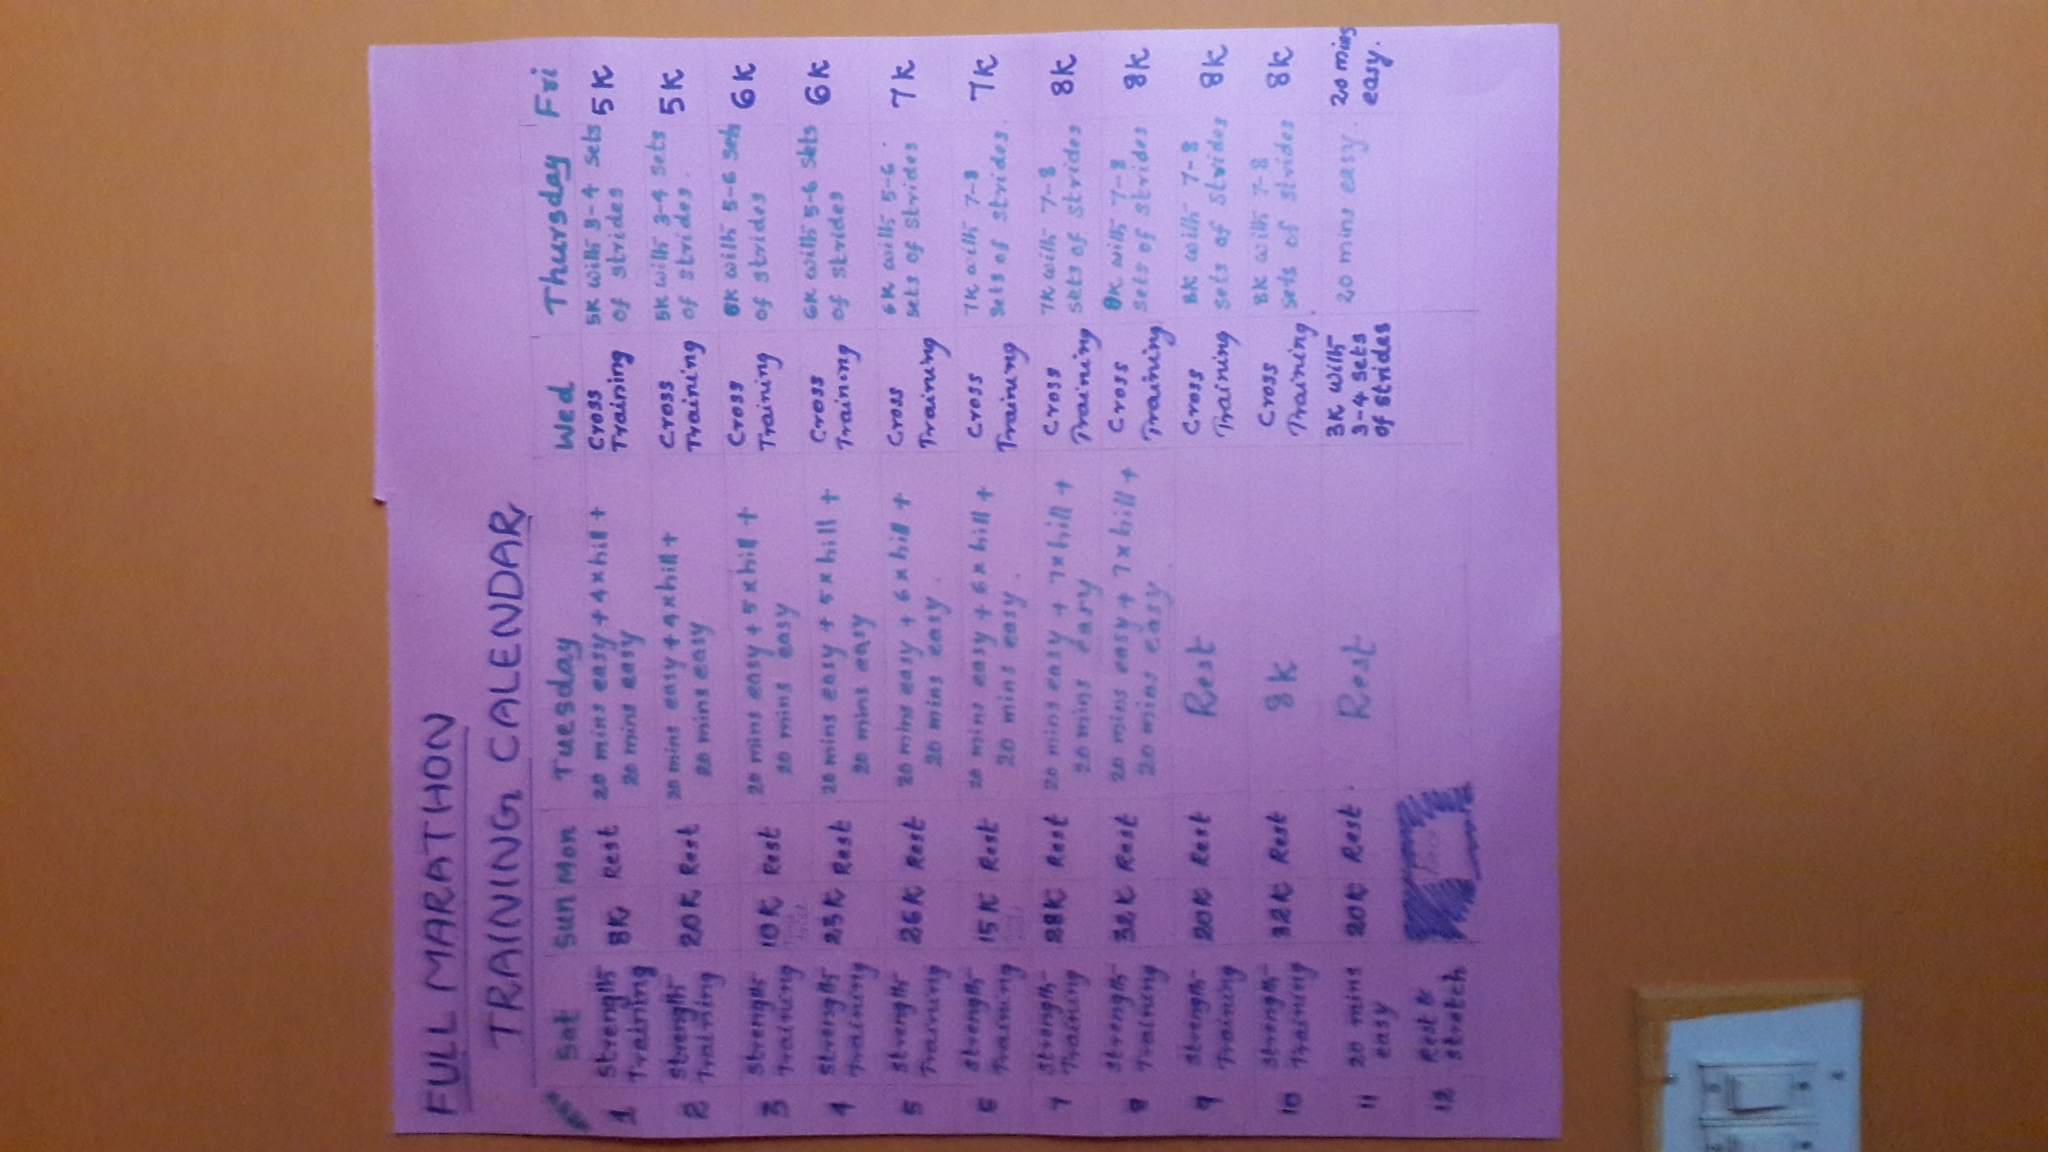 FULL MARATHON
TRAINING CALENDAR
Sat Sun Mon Tuesday Wed Thursday Fri
1 Strength Training 8K Rest 20 mins easy + 4x hill + 20 mins easy Cross Training 5K with 3-4 sets of strides 5K
2 Strength Training 20K Rest 20 mins easy + 4x hill + 20 mins easy Cross Training 5K with 3-4 sets of strides. 5K
3 Strength Training 10K Rest 20 mins easy + 5x hill + 20 mins easy Cross Training 6K with 5-6 sets of strides 6K
4 Strength Training 23K Rest 20 mins easy + 5x hill + 20 mins easy Cross Training 6K with 5-6 sets of strides 6K
5 Strength Training 26K Rest 20 mins easy + 6x hill + 20 mins easy. Cross Training 6K with 5-6 sets of strides 7K
6 Strength Training 15K Rest 20 mins easy + 6x hill + 20 mins easy. Cross Training 7K with 7-8 sets of strides. 7K
7 Strength Training 28K Rest 20 mins easy + 7x hill + 20 mins easy Cross Training 7K with 7-8 sets of strides 8K
8 Strength Training 32K Rest 20 mins easy + 7x hill + 20 mins easy Cross Training 8K with 7-8 sets of strides 8K
9 Strength Training 20K Rest Rest Cross Training 8K with 7-8 sets of strides 8K
10 Strength Training 32K Rest 8K Cross Training 8K with 7-8 sets of strides 8K
11 20 mins easy 20K Rest. Rest 3K with 3-4 sets of strides 20 mins easy. 20 mins easy.
12 Rest & stretch Race